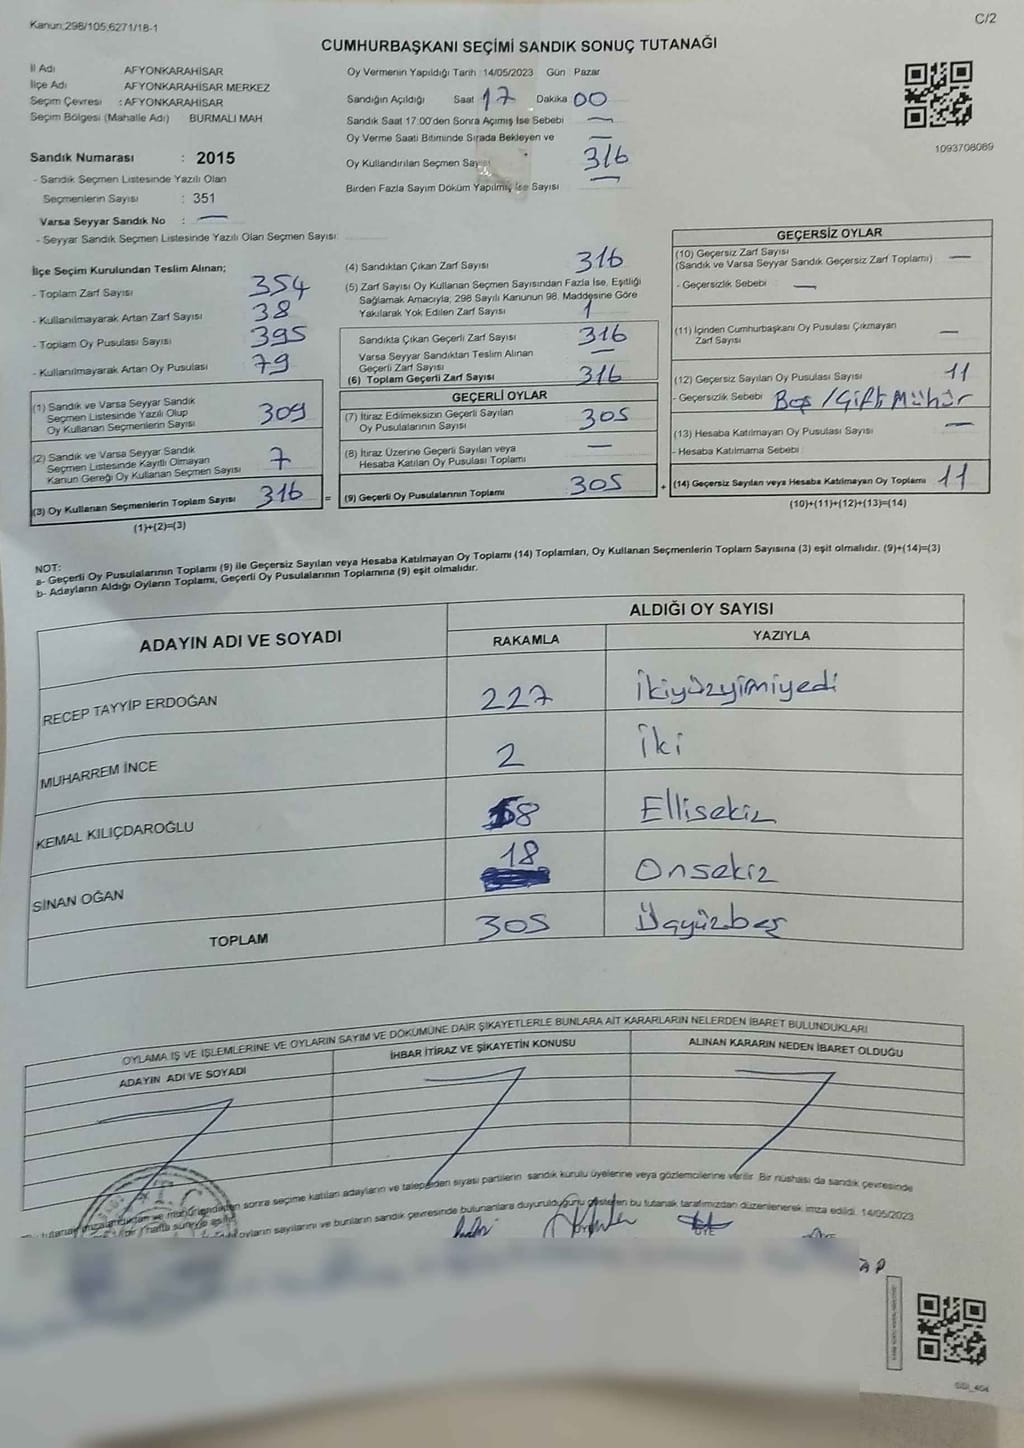 Kanun;298/105;6271/18-1
C/2
CUMHURBAŞKANI SEÇİMİ SANDIK SONUÇ TUTANAĞI
İl Adı AFYONKARAHİSAR
İlçe Adı AFYONKARAHİSAR MERKEZ
Seçim Çevresi : AFYONKARAHİSAR
Seçim Bölgesi (Mahalle Adı) BURMALI MAH
Sandık Numarası : 2015
- Sandık Seçmen Listesinde Yazılı Olan
Seçmenlerin Sayısı : 351
Varsa Seyyar Sandık No : —
- Seyyar Sandık Seçmen Listesinde Yazılı Olan Seçmen Sayısı:
Oy Vermenin Yapıldığı Tarih : 14/05/2023 Gün : Pazar
Sandığın Açıldığı Saat 17 Dakika 00
Sandık Saat 17:00'den Sonra Açımış İse Sebebi —
Oy Verme Saati Bitiminde Sırada Bekleyen ve —
Oy Kullandırılan Seçmen Sayısı 316
Birden Fazla Sayım Döküm Yapılmış İse Sayısı —
1093708089
İlçe Seçim Kurulundan Teslim Alınan;
- Toplam Zarf Sayısı 354
- Kullanılmayarak Artan Zarf Sayısı 38
- Toplam Oy Pusulası Sayısı 395
- Kullanılmayarak Artan Oy Pusulası 79
(1) Sandık ve Varsa Seyyar Sandık
Seçmen Listesinde Yazılı Olup
Oy Kullanan Seçmenlerin Sayısı 309
(2) Sandık ve Varsa Seyyar Sandık
Seçmen Listesinde Kayıtlı Olmayan
Kanun Gereği Oy Kullanan Seçmen Sayısı 7
(3) Oy Kullanan Seçmenlerin Toplam Sayısı 316 =
(1)+(2)=(3)
(4) Sandıktan Çıkan Zarf Sayısı 316
(5) Zarf Sayısı Oy Kullanan Seçmen Sayısından Fazla İse, Eşitliği
Sağlamak Amacıyla; 298 Sayılı Kanunun 98. Maddesine Göre
Yakılarak Yok Edilen Zarf Sayısı 1
Sandıkta Çıkan Geçerli Zarf Sayısı 316
Varsa Seyyar Sandıktan Teslim Alınan —
Geçerli Zarf Sayısı
(6) Toplam Geçerli Zarf Sayısı 316
GEÇERLİ OYLAR
(7) İtiraz Edilmeksizin Geçerli Sayılan
Oy Pusulalarının Sayısı 305
(8) İtiraz Üzerine Geçerli Sayılan veya —
Hesaba Katılan Oy Pusulası Toplamı
(9) Geçerli Oy Pusulalarının Toplamı 305 +
GEÇERSİZ OYLAR
(10) Geçersiz Zarf Sayısı
(Sandık ve Varsa Seyyar Sandık Geçersiz Zarf Toplamı) —
- Geçersizlik Sebebi : —
(11) İçinden Cumhurbaşkanı Oy Pusulası Çıkmayan
Zarf Sayısı —
(12) Geçersiz Sayılan Oy Pusulası Sayısı 11
- Geçersizlik Sebebi : Boş / Çift Mühür
(13) Hesaba Katılmayan Oy Pusulası Sayısı —
- Hesaba Katılmama Sebebi :
(14) Geçersiz Sayılan veya Hesaba Katılmayan Oy Toplamı 11
(10)+(11)+(12)+(13)=(14)
NOT:
a- Geçerli Oy Pusulalarının Toplamı (9) ile Geçersiz Sayılan veya Hesaba Katılmayan Oy Toplamı (14) Toplamları, Oy Kullanan Seçmenlerin Toplam Sayısına (3) eşit olmalıdır. (9)+(14)=(3)
b- Adayların Aldığı Oyların Toplamı, Geçerli Oy Pusulalarının Toplamına (9) eşit olmalıdır.
ADAYIN ADI VE SOYADI
ALDIĞI OY SAYISI
RAKAMLA YAZIYLA
RECEP TAYYİP ERDOĞAN 227 İkiyüzyirmiyedi
MUHARREM İNCE 2 İki
KEMAL KILIÇDAROĞLU 58 Ellisekiz
SİNAN OĞAN 18 Onsekiz
TOPLAM 305 Üçyüzbeş
OYLAMA İŞ VE İŞLEMLERİNE VE OYLARIN SAYIM VE DÖKÜMÜNE DAİR ŞİKAYETLERLE BUNLARA AİT KARARLARIN NELERDEN İBARET BULUNDUKLARI
ADAYIN ADI VE SOYADI İHBAR İTİRAZ VE ŞİKAYETİN KONUSU ALINAN KARARIN NEDEN İBARET OLDUĞU
sonra seçime katılan adayların ve talepeden siyasi partilerin sandık kurulu üyelerine veya gözlemcilerine verilir. Bir nüshası da sandık çevresinde
oyların sayılarını ve bunların sandık çevresinde bulunanlara duyurulduğunu gösteren bu tutanak tarafımızdan düzenlenerek imza edildi. 14/05/2023
ÜYE